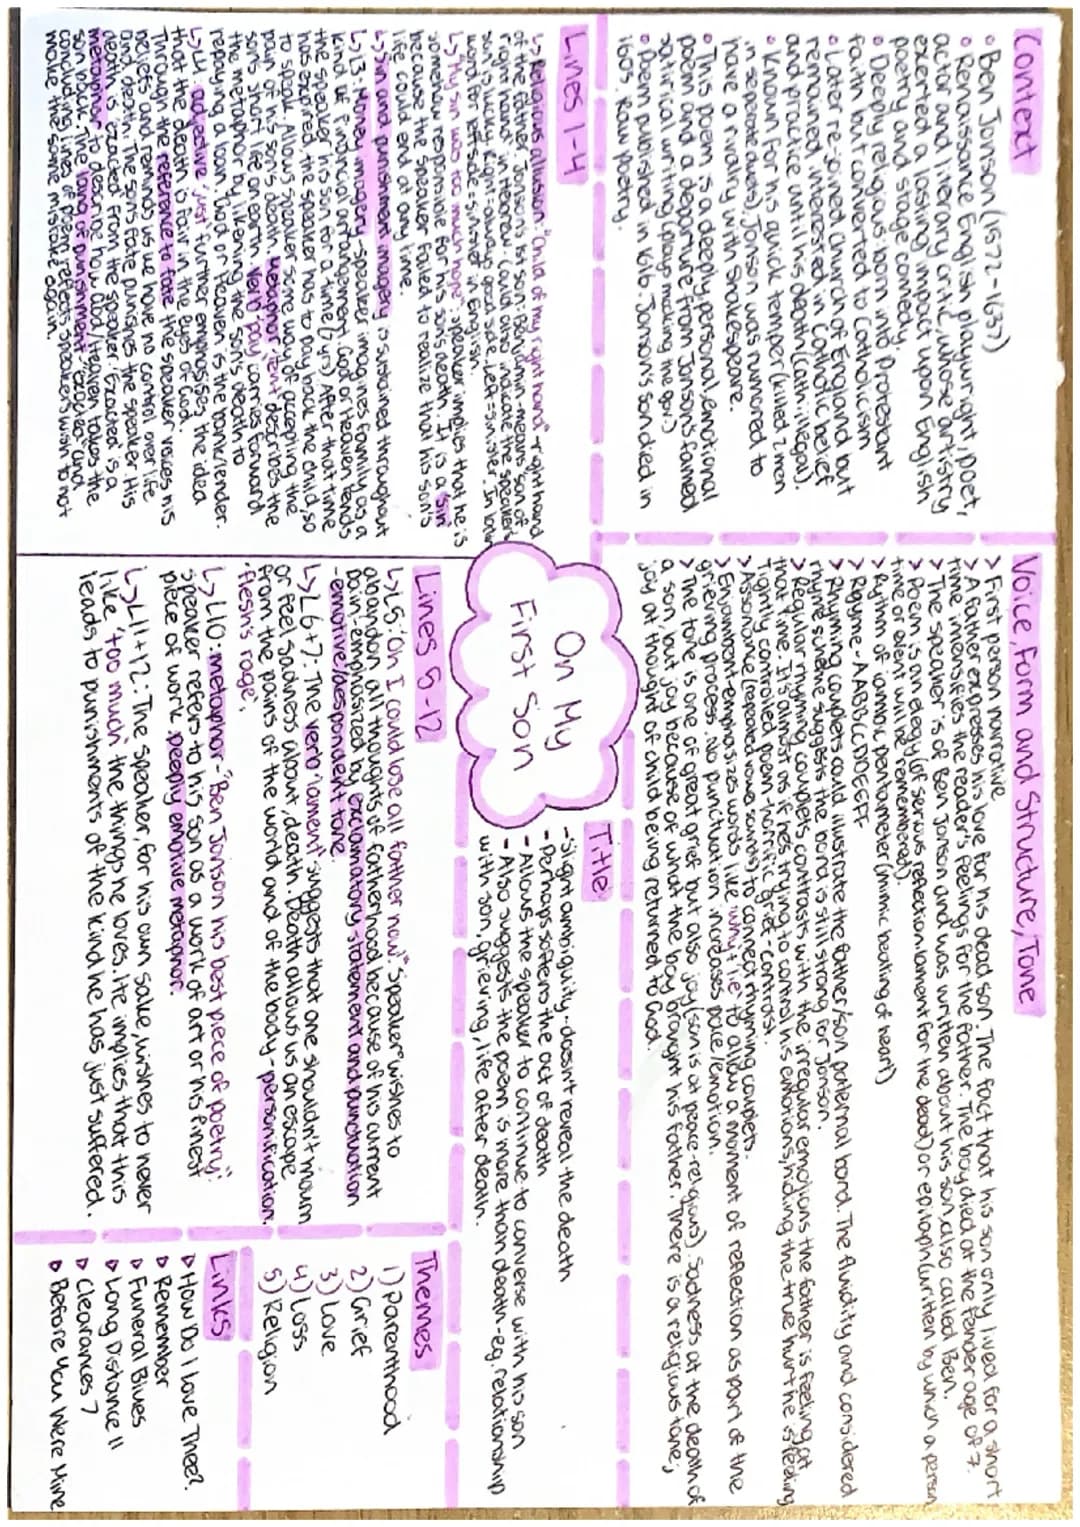 Context
• Ben Jonson (1572-1637)
• Renaissance English playwright, poet,
actor and literary critic, whose artistry
exerted a lasting impact upon English
poetry and stage comedy.
• Deeply religious: born into Protestant
faith but converted to Catholicism
• Later rejoined Church of England but
remained interested in Catholic belief
and practice until his death (Cath: illegal).
• Known for his quick temper (killed 2 men
in separate duels). Jonson was rumored to
have a rivalry with Shakespeare.
• This poem is a deeply personal, emotional
poem and a departure from Jonson's famed
satirical writing (plays mocking the gov.)
• Poem published in 1616. Jonson's son died in
1603. Raw poetry.
Voice, Form and Structure, Tone
> First person narrative
> A father expresses his love for his dead son. The fact that his son only lived for a short
time intensifies the reader's feelings for the father. The boy died at the tender age of 7.
> The speaker is of Ben Jonson and was written about his son, also called Ben.
> Poem is an elegy (of serious reflection: lament for the dead) or epitaph (written by which a person
time or event will be remembered).
> Rythm of iambic pentameter (mimic beating of heart)
> Rhyme - AABBCCDDEEFF
> Rhyming couplets could illustrate the father/son paternal bond. The fluidity and considered
rhyme scheme suggests the bond is still strong for Jonson.
> Regular rhyming couplets contrasts with the irregular emotions the father is feeling at
that time. It's almost as if he's trying to control his emotions, hiding the true hurt he is feeling
Tightly controlled poem - horrific grief - contrast.
> Assonance (repeated vowel sounds) to connect rhyming couplets.
> Enjambment - emphasizes words like 'why' + 'lie' to allow a moment of reflection as part of the
grieving process. No punctuation increases pace/emotion.
> The tone is one of great grief but also joy (son is at peace - religious). Sadness at the death of
a son, but joy because of what the boy brought his father. There is a religious tone;
joy at thought of child being returned to God.
Lines 1-4
↳ Religious allusion: "Child of my right hand" - right hand
of the father. Jonson's 1st son: Benjamin - means 'son of
right hand' in Hebrew. Could also indicate the speaker's
son is lucky. Right = always good side, left = sinister. In latin
word for left side = sinister in English.
↳ 'My sin was too much hope': speaker implies that he is
somehow responsible for his son's death. It is a 'sin'
because the speaker failed to realize that his son's
life could end at any time.
↳ Sin and punishment imagery is sustained throughout
↳ L3: Money imagery - speaker imagines family as a
kind of financial arrangement. God or Heaven 'lends'
the speaker his son for a time (7 yrs) After that time
has expired, the speaker has to pay back the child, so
to speak. Allows speaker some way of accepting the
pain of his son's death. Metaphor 'lent' describes the
sons short life on earth. Verb 'pay' carries forward
the metaphor by likening the son's death to
repaying a loan. God or Heaven is the bank/lender.
↳ L4: adjective 'just' further emphasises the idea
that the death is fair in the eyes of God.
Through the reference to fate the speaker voices his
beliefs and reminds us we have no control over life
and death. The son's fate punishes the speaker. His
death is 'exacted' from the speaker: 'Exacted' is a
metaphor to describe how God/Heaven takes the
son back. The lang of punishment 'exacted' and
concluding lines of poem reflects speaker's wish to not
make the same mistake again.
On My
First Son
Title
- Slight ambiguity - doesn't reveal the death
- Perhaps softens the act of death
- Allows the speaker to continue to converse with his son
- Also suggests the poem is more than death - eg. relationship
with son, grieving, life after death.
Lines 5-12
↳ L5: 'Oh I could lose all father now' speaker wishes to
abandon all thoughts of fatherhood because of his current
pain; emphasized by exclamatory statement and punctuation
- emotive/despondent tone.
↳ L6+7: The verb 'lament' suggests that one shouldn't mourn
or feel sadness about, death. Death allows us an escape
from the pains of the world and of the body - personification.
'flesh's rage'.
↳ L10: metaphor - "Ben Jonson his best piece of poetry":
speaker refers to his son as a work of art or his finest
piece of work. Deeply emotive metaphor.
↳ L11+12: The speaker, for his own sake, wishes to never
like 'too much' the things he loves. He implies that this
leads to punishments of the kind he has just suffered.
Themes
1) Parenthood
2) Grief
3) Love
4) Loss
5) Religion
Links
▷ How Do I Love Thee?.
▷ Remember
▷ Funeral Blues
▷ Long Distance II
▷ Clearances 7
▷ Before You Were Mine